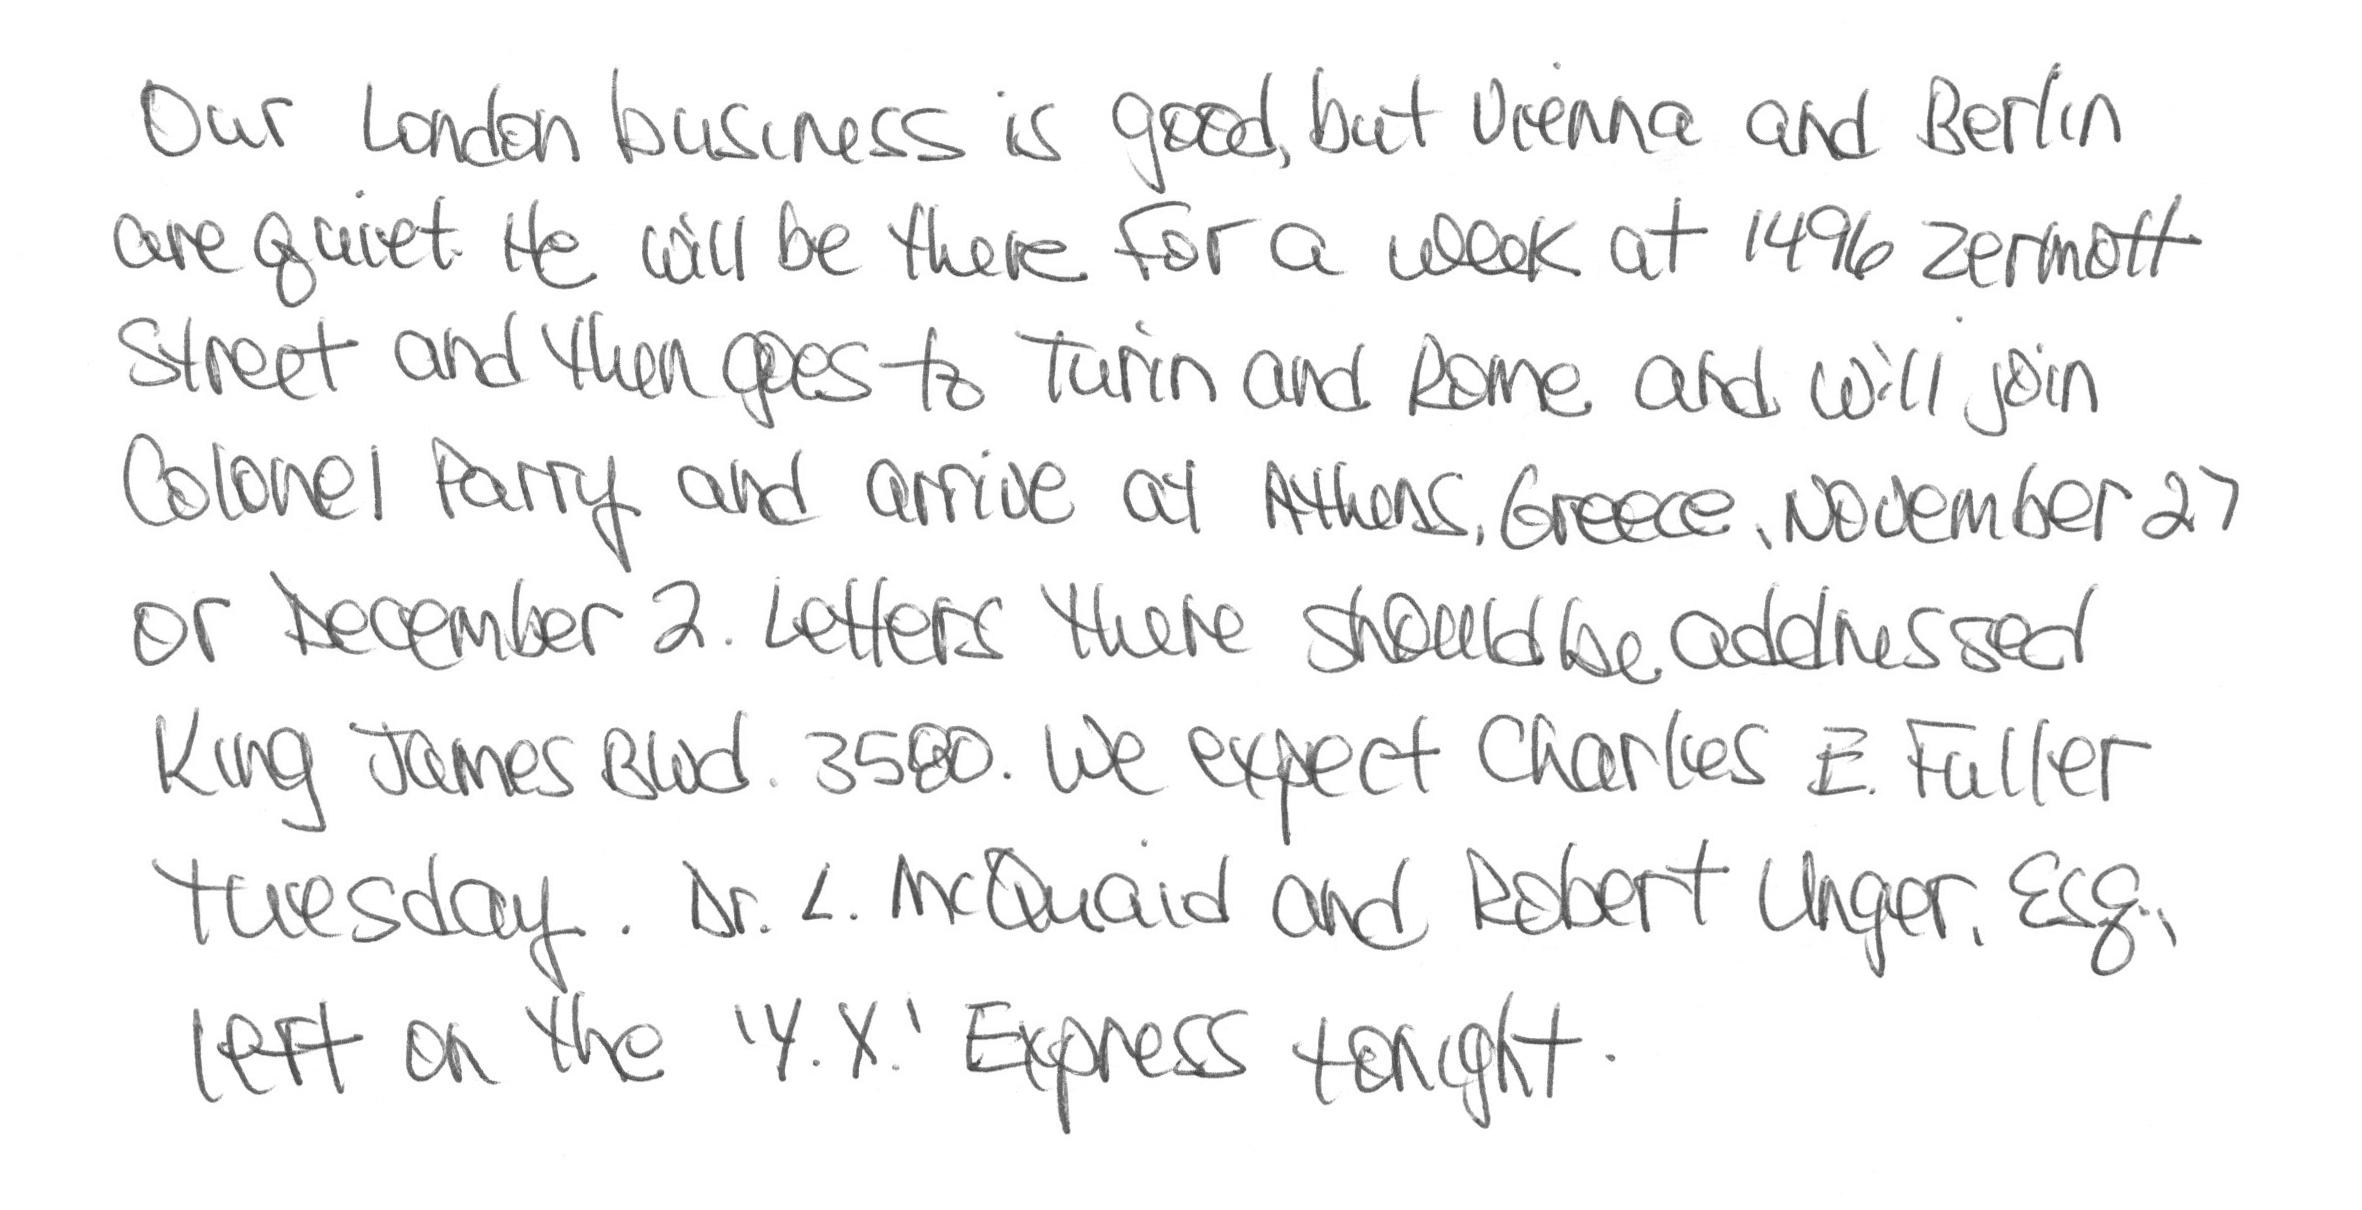 Our London business is good, but Vienna and Berlin
are quiet. He will be there for a week at 1496 Zermott
Street and then goes to Turin and Rome and will join
Colonel Parry and arrive at Athens, Greece, November 27
or December 2. Letters there should be addressed
King James Blvd. 3580. We expect Charles E. Fuller
Tuesday. Dr. L. McQuaid and Robert Unger, Esq.,
left on the 'Y.X.' Express tonight.